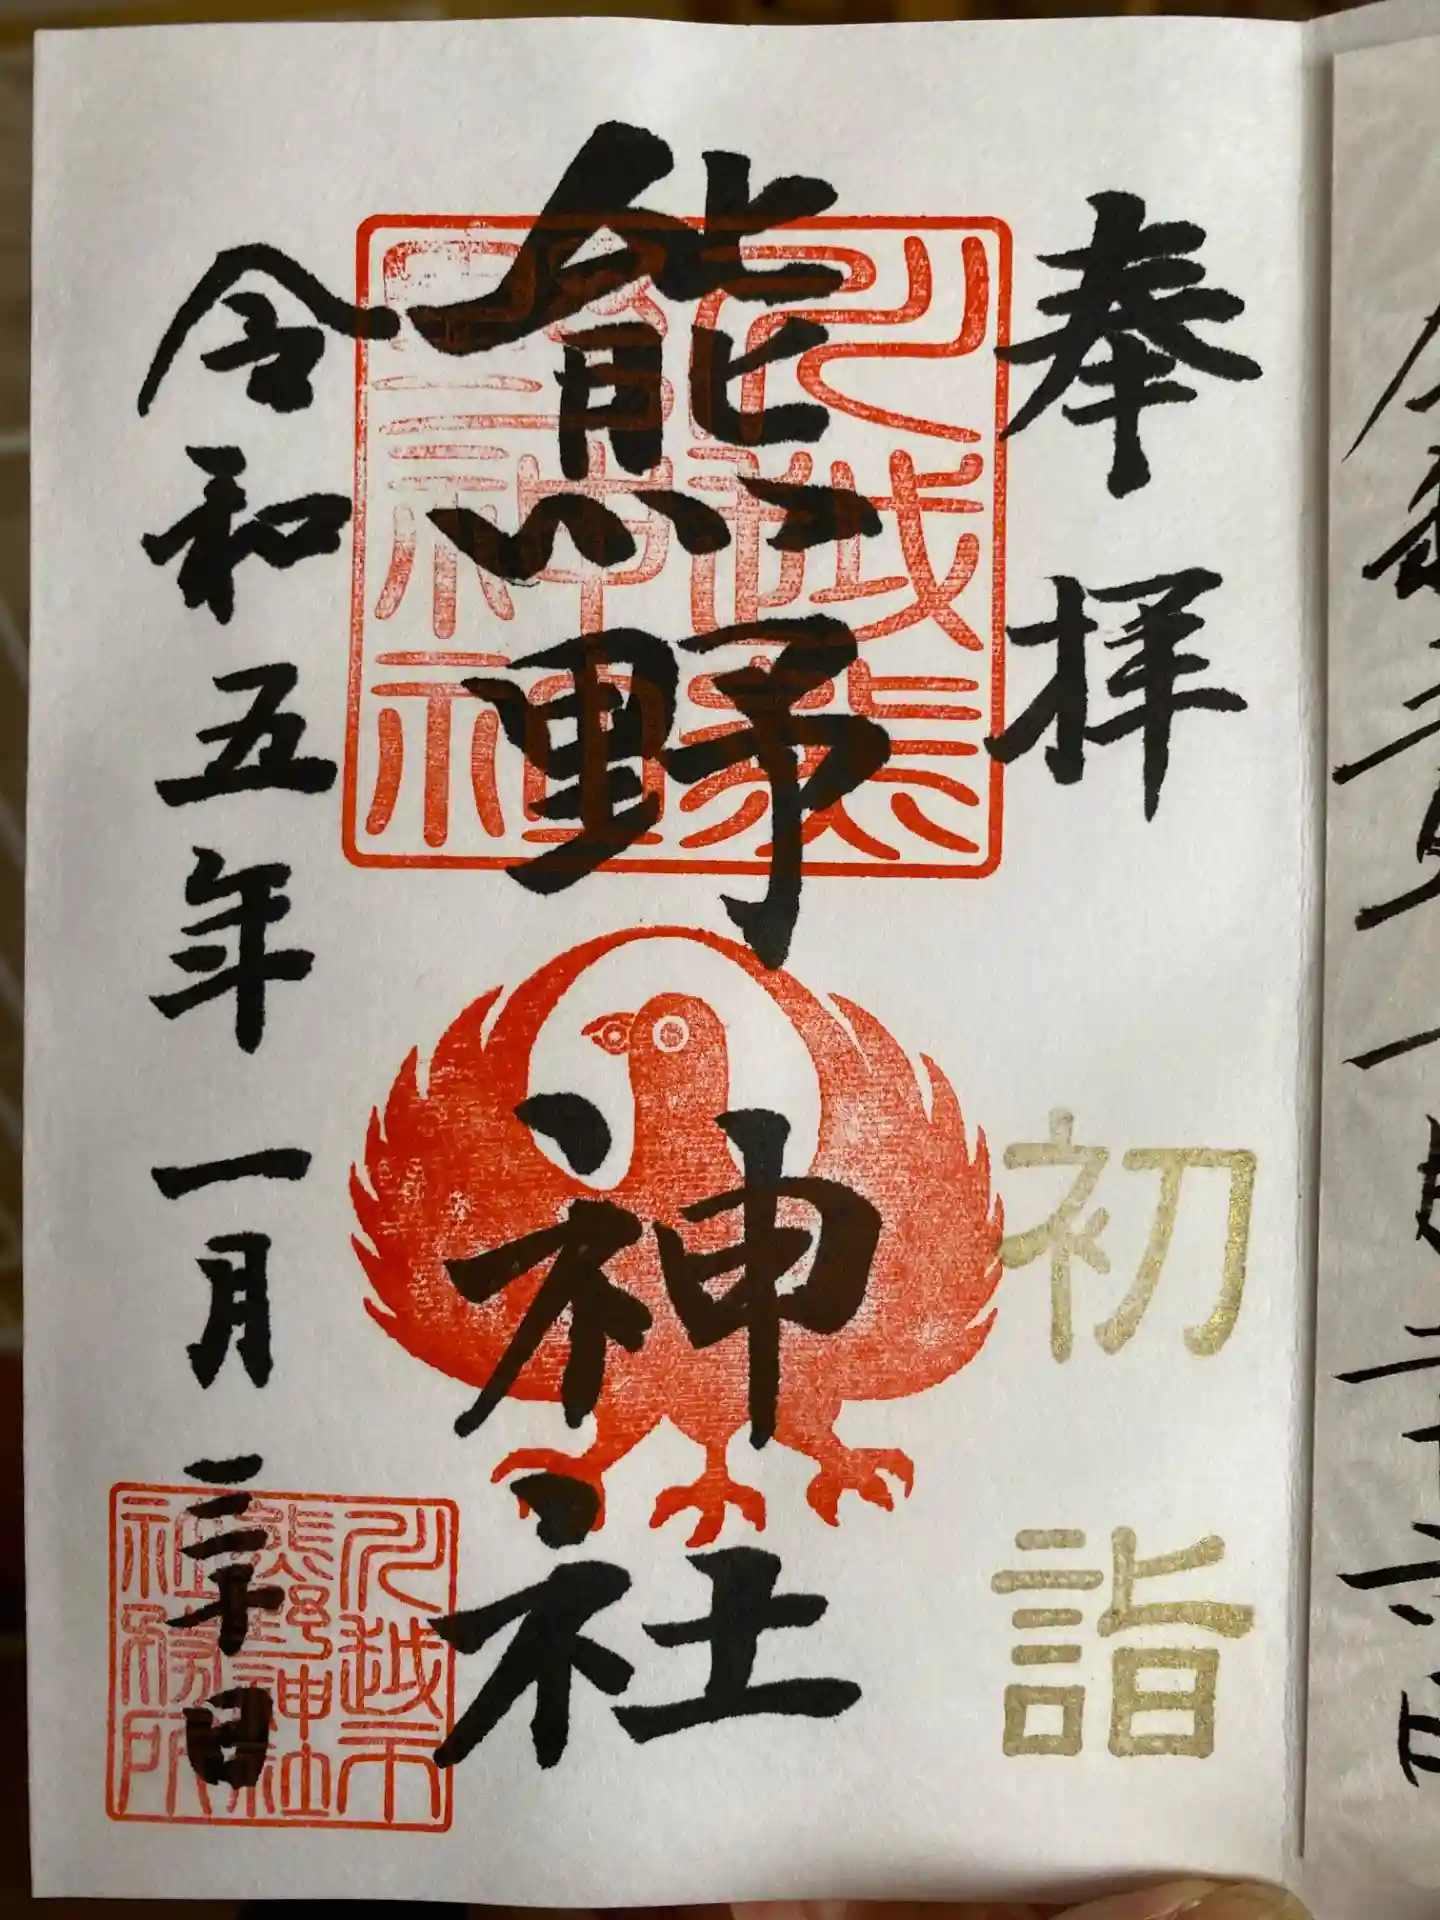 奉拝
初詣
熊野神社
令和五年一月三十日
川越市
熊野神社
社務所